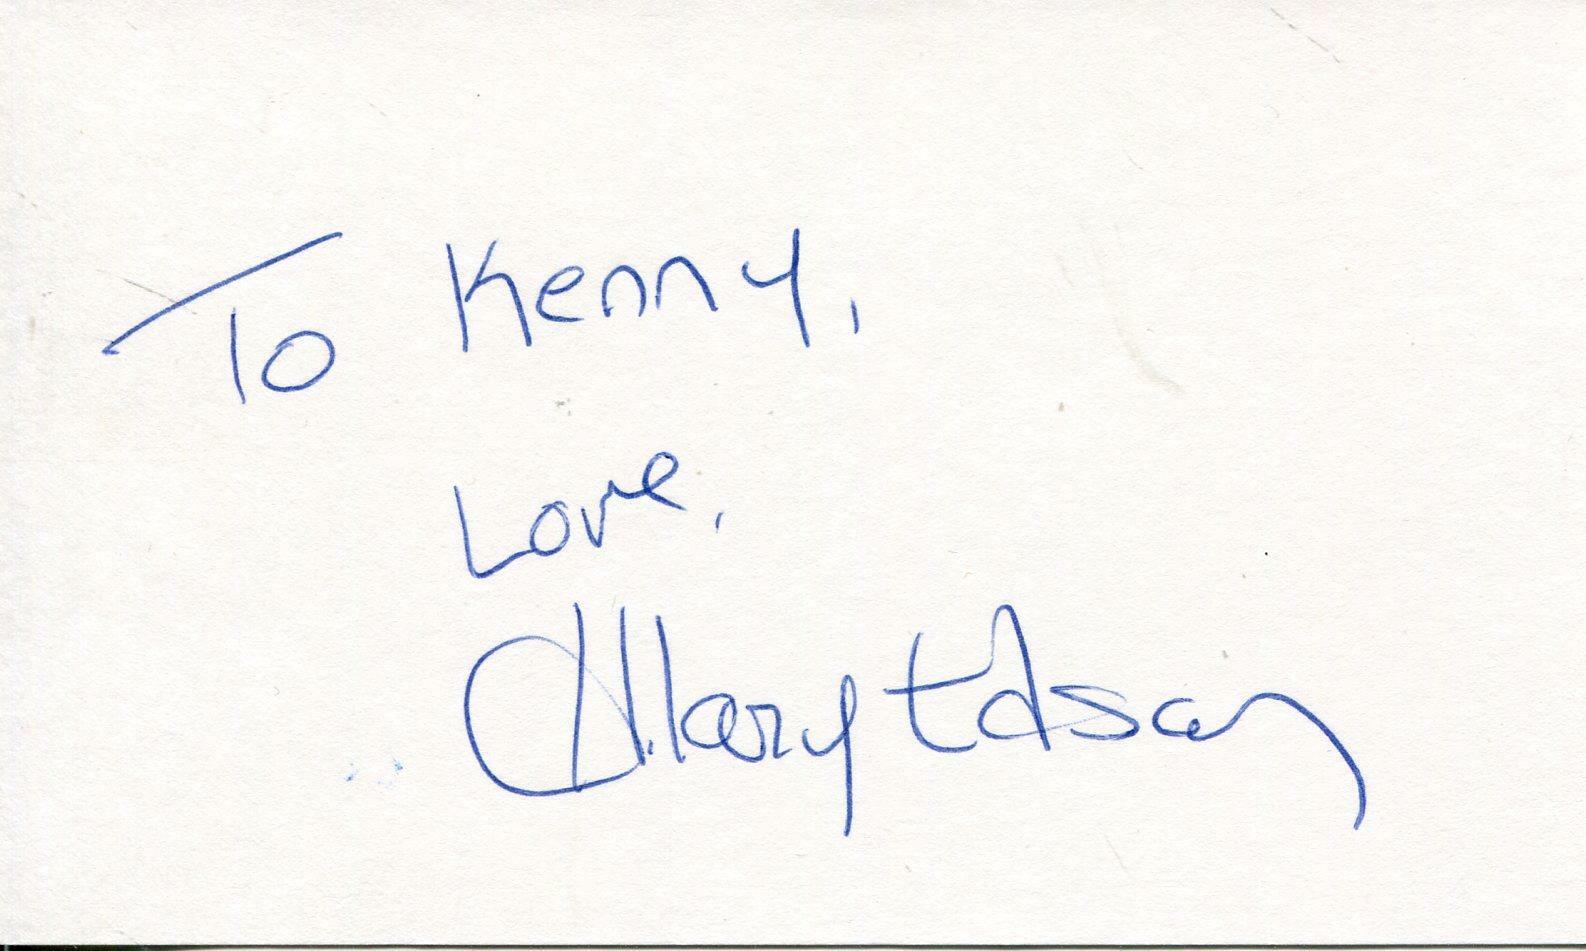 To Kenny,
Love,
Hilary Edson